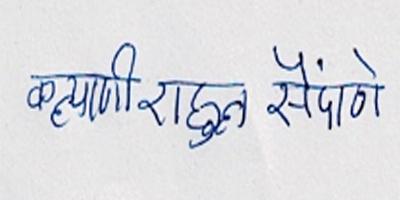 कल्याणी राहुल सैंदाणे